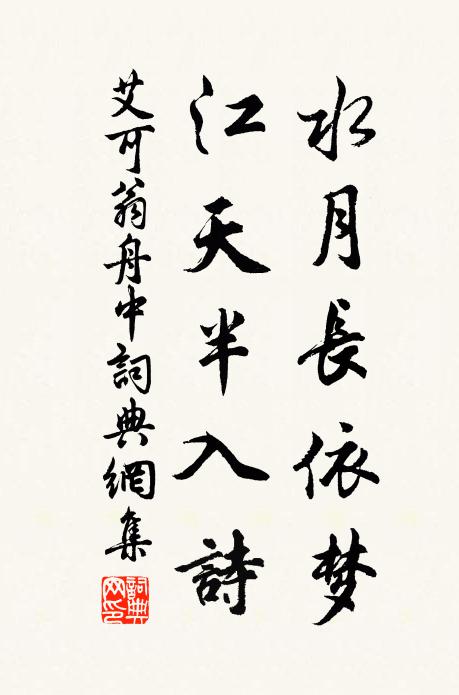 水月長依梦
江天半入詩
艾可翁舟中詞典網集
詞典網印